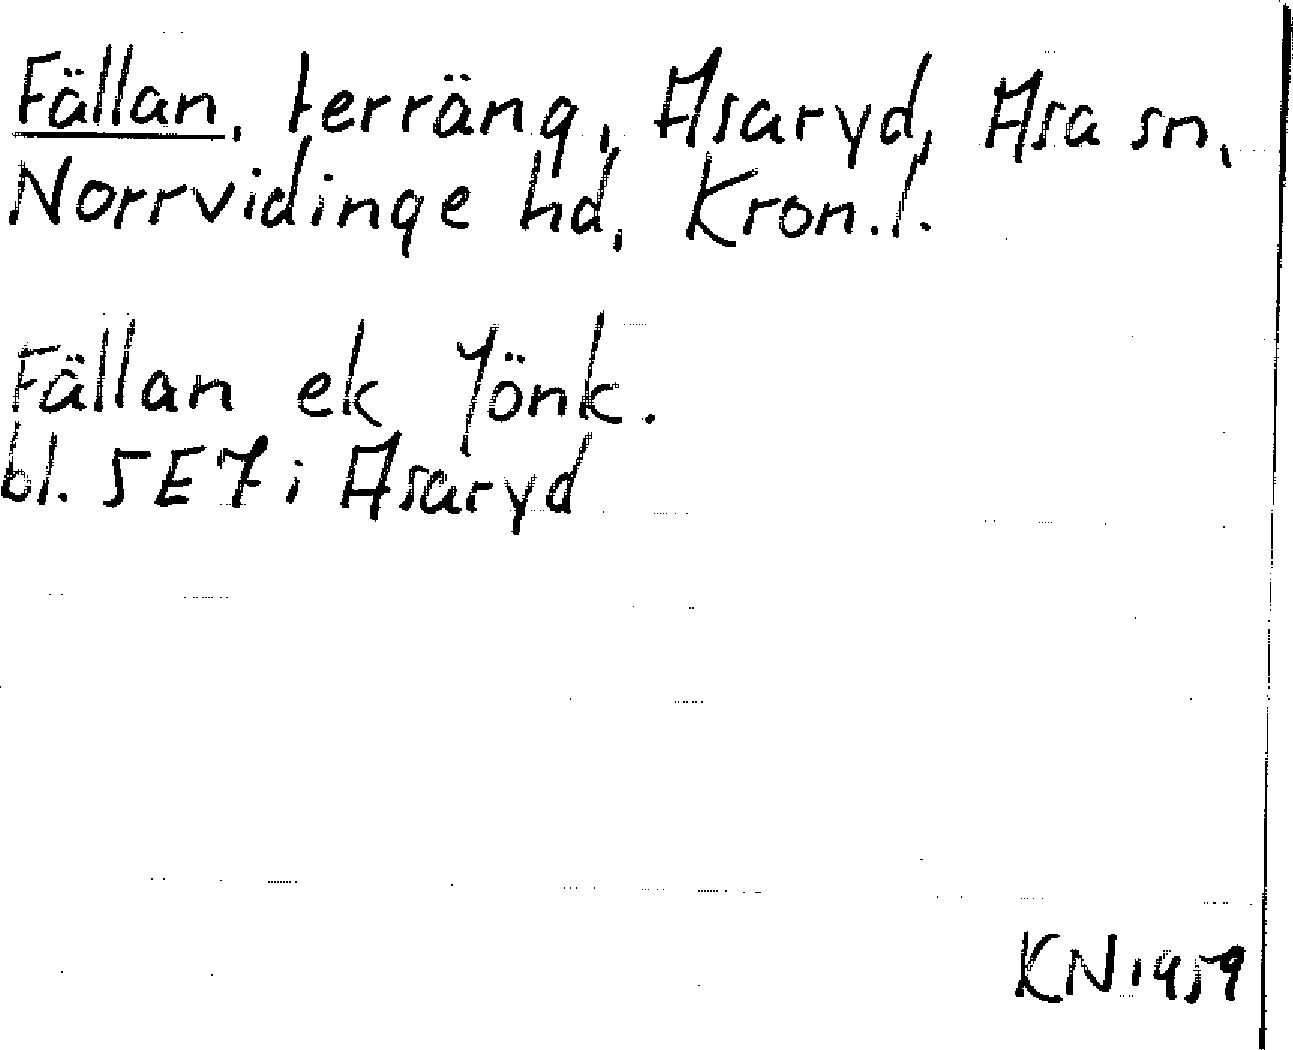 Fällan, terräng, Asaryd, Asa sn,
Norrvidinge hd, Kron.l.
Fällan ek Jönk.
bl. 5E7 i Asaryd
KN 1959